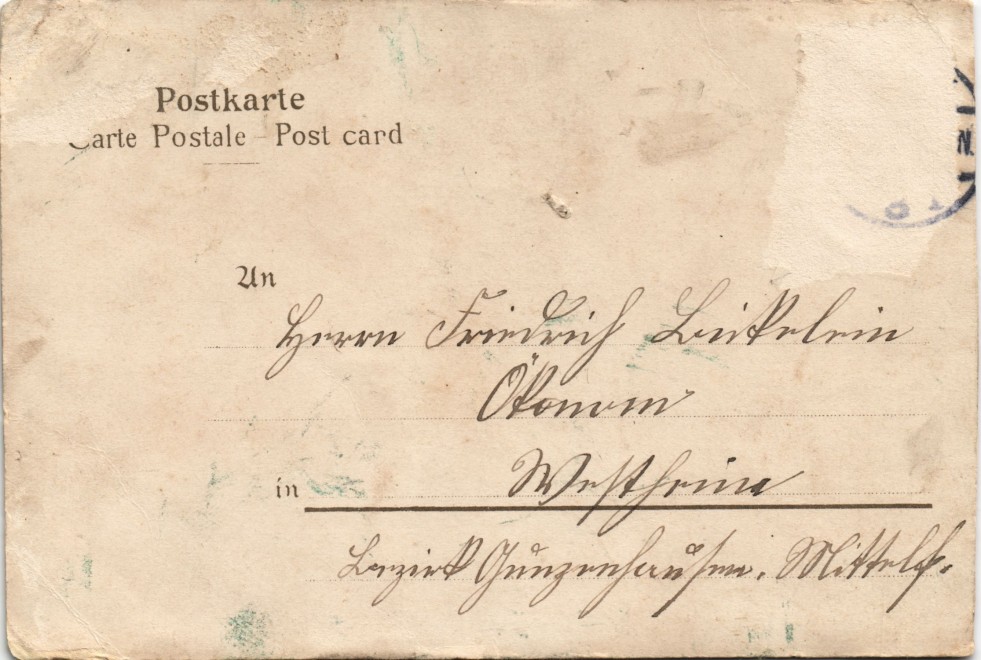 Postkarte
Carte Postale – Post card
An
Herrn Friedrich
Ökonom
in Westheim
Bezirk Gunzenhausen. Mittelf.